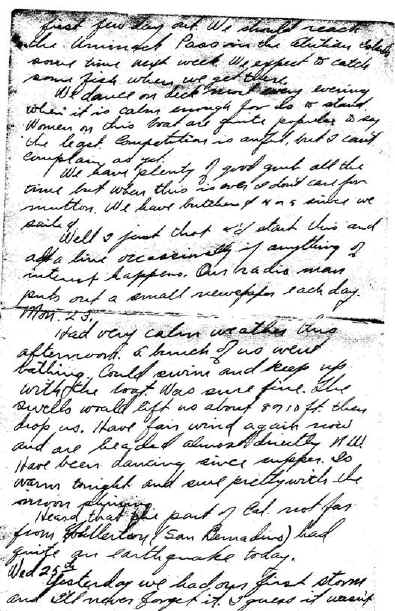 first few day out. We should reach
the Unimack Pass in the Alutian Islands
some time next week. We expect to catch
some fish when we get there.
We dance on deck most every evening
when it is calm enough for us to stand.
Women on this boat are quite popular to say
the least. Competition is awful, but I can't
complain as yet.
We have plenty of good grub all the
time but when this is over I don't care for
mutton. We have butchered 4 or 5 since we
sailed.
Well I just that I'd start this and
add a line occassionly if anything of
interest happens. Our radio man
puts out a small newspaper each day.
Mon. 23.
Had very calm weather this
afternoon. A bunch of us went
bathing. Could swim and keep up
with the boat. Was sure fine. The
swells would lift us about 8 or 10 ft. then
drop us. Have fair wind again now
and are headed almost directly N.W.
Have been dancing since supper. So
warm tonight and sure pretty with the
moon shining.
Heard that the part of Cal. not far
from Fullerton (San Bernadino) had
quite an earthquake today.
Wed 25th
Yesterday we had our first storm
and I'll never forget it. I guess it wasn't